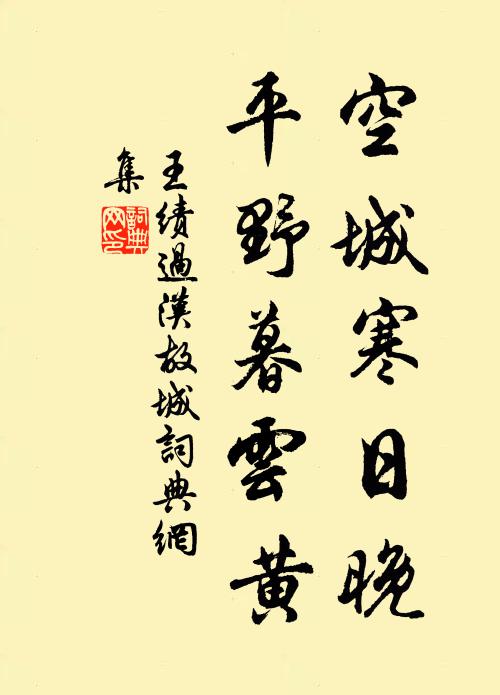 空城寒日晚
平野暮雲黄
王績過漢故城詞典網
集
詞典
网印